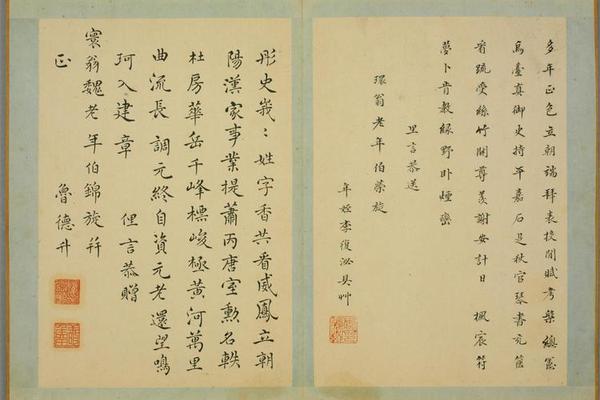 多年正色立朝端拜表投閒賦考槃總憲
烏臺真御史持平嘉石是秋官琴書充篋
疏受絲竹開尊羨謝安計日 楓宸符
夢卜肯教綠野卧煙巒
里言恭送
環翁老年伯榮旋
年姪李復泌具艸
彤史峩〻姓字香共看威鳳立朝
陽漢家事業提蕭丙唐室勳名軼
杜房華岳千峰標峻極黃河萬里
曲流長調元終自資元老還望鳴
珂入建章 俚言恭贈
寰翁魏老年伯錦旋并
正 魯德升